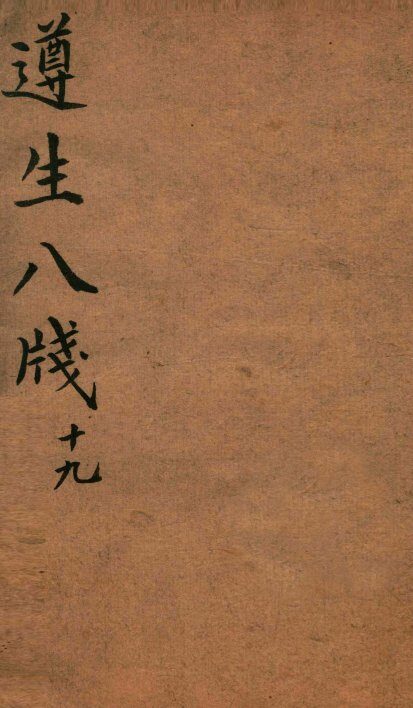 遵生八牋
十九